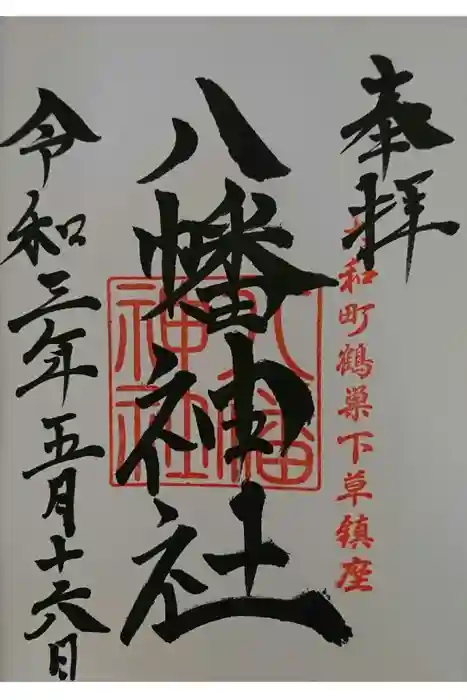 奉拝
大和町鶴巣下草鎮座
八幡神社
八幡神社
令和三年五月十六日